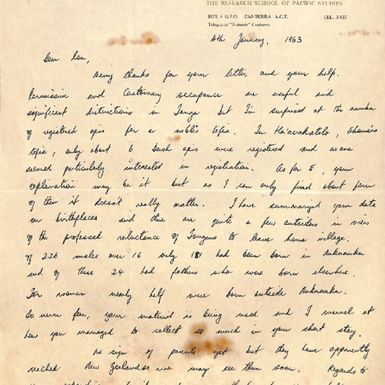 THE RESEARCH SCHOOL OF PACIFIC STUDIES
BOX 4 G.P.O. CANBERRA A.C.T. TEL.
Telegrams "Natuniv" Canberra
4th January, 1963
Dear
Many thanks for your letter and your help.
Permissive and Customary occupance are useful and
significant distinctions in Tonga but I'm surprised at the number
of registered apis for a noble's tofia. In Ha'avakatolo,
tofia, only about 6 bush apis were registered and no one
seemed particularly interested in registration. As for your
explanation may be it but as I can only find about four
of them it doesn't really matter. I have summarized your data
on birthplaces and there are quite a few outsiders in view
of the professed reluctance of Tongans to leave home village.
Of 226 males over 16 only 181 had been born in Nukunuku
and of these 24 had fathers who were born elsewhere.
For women nearly half were born outside Nukunuku.
So never fear, your material is being used and I marvel at
how you managed to collect so much in your short stay.
No sign of parents yet but they have apparently
reached New Zealand so we may see them soon. Regards to